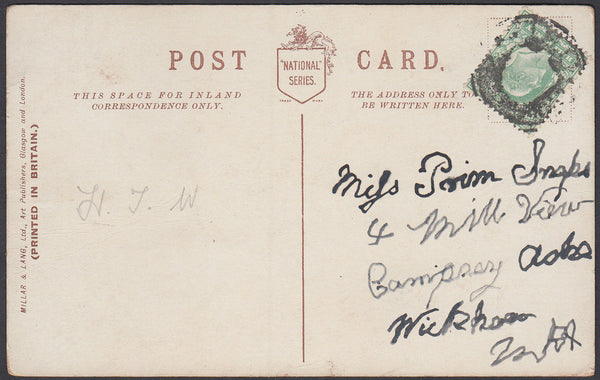 POST CARD.
"NATIONAL"
SERIES.
THIS SPACE FOR INLAND
CORRESPONDENCE ONLY.
THE ADDRESS ONLY TO
BE WRITTEN HERE.
MILLAR & LANG, Ltd., Art Publishers, Glasgow and London.
(PRINTED IN BRITAIN.)
H. J. W
Miss Prim
4 Mill View
Campsey Ashe
Wickham